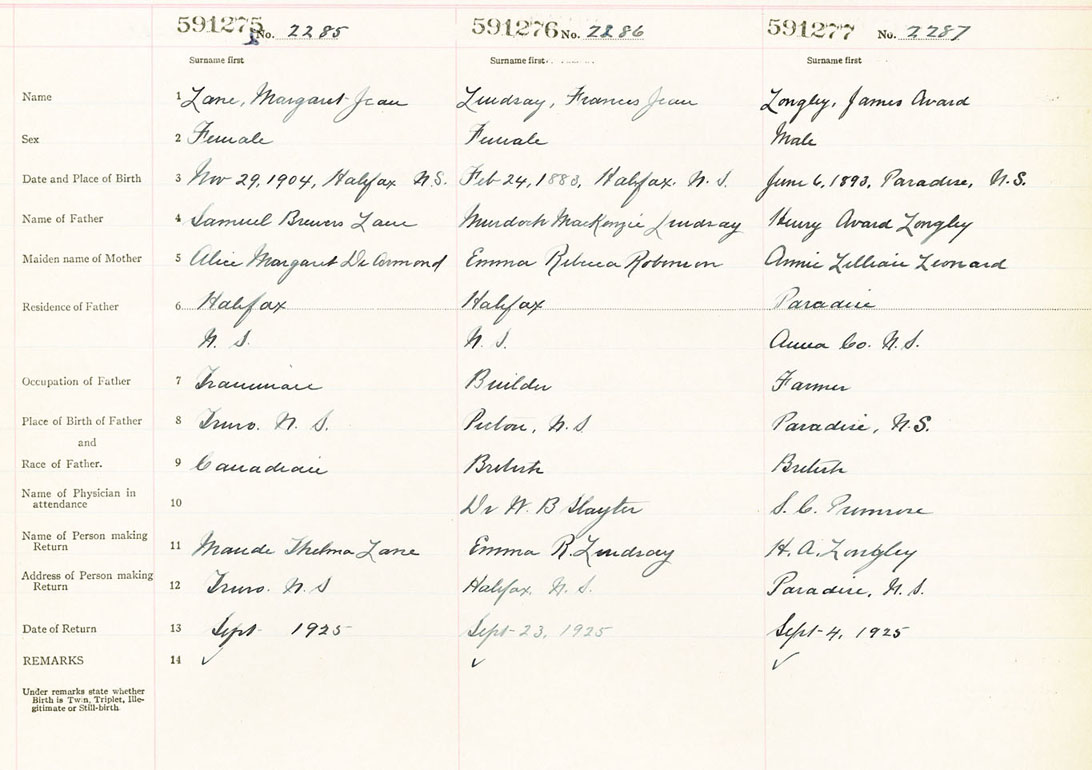 591275 No. 2285 591276 No. 2286 591277 No. 2287
Surname first Surname first Surname first
Name 1 Lane, Margaret Jean Lindsay, Frances Jean Longley, James Avard
Sex 2 Female Female Male
Date and Place of Birth 3 Nov 29, 1904, Halifax N.S. Feb 24, 1883, Halifax. N. S. June 6, 1893, Paradise, N.S.
Name of Father 4 Samuel Brewers Lane Murdoch MacKenzie Lindsay Henry Avard Longley
Maiden name of Mother 5 Alice Margaret DeArmond Emma Rebecca Robinson Annie Lillian Leonard
Residence of Father 6 Halifax Halifax Paradise
N. S. N. S. Anna Co. N.S.
Occupation of Father 7 Trainman Builder Farmer
Place of Birth of Father 8 Truro. N. S. Pictou, N.S Paradise, N.S.
and
Race of Father. 9 Canadian British British
Name of Physician in
attendance 10 Dr W. B Slayter S. C. Primrose
Name of Person making
Return 11 Maude Thelma Lane Emma R. Lindsay H. A. Longley
Address of Person making
Return 12 Truro. N. S Halifax. N. S. Paradise, N. S.
Date of Return 13 Sept 1925 Sept-23, 1925 Sept-4, 1925
REMARKS 14 ✓ ✓ ✓
Under remarks state whether
Birth is Twin, Triplet, Ille-
gitimate or Still-birth.